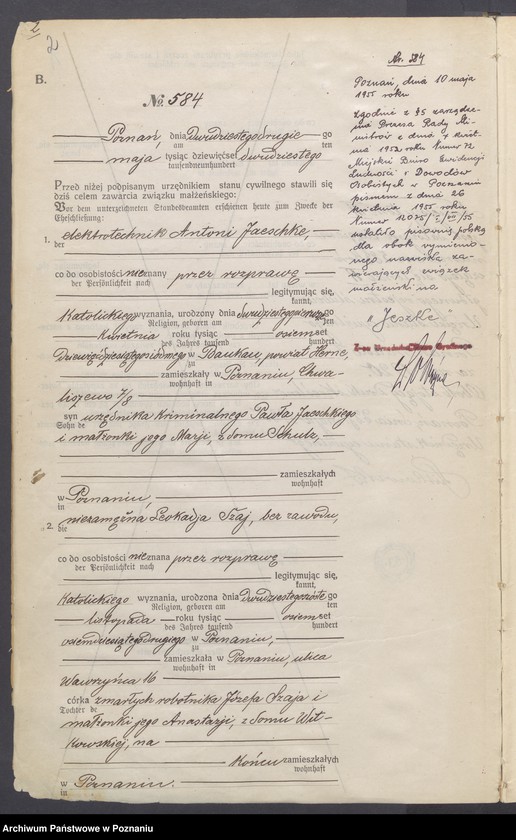 2
B.
№ 584
Poznań, dnia Dwudziestegodrugiego
am ten
maja tysiąc dziewięćset dwudziestego
tausendneunhundert
Przed niżej podpisanym urzędnikiem stanu cywilnego stawili się
dziś celem zawarcia związku małżeńskiego:
Vor dem unterzeichneten Standesbeamten erschienen heute zum Zwecke der
Eheschließung:
1. elektrotechnik Antoni Jaeschke,
der
co do osobistości nieznany przez rozprawę
der Persönlichkeit nach
legitymując się,
kannt,
Katolickiego wyznania, urodzony dnia
Religion, geboren am ten
kwietnia roku tysiąc osiemset
des Jahres tausend hundert
Dziewięćdziesiątego w Baukau, powiat Herne,
zu
zamieszkały w Poznaniu, Chwa-
wohnhaft in
liszewo 7/8
syn urzędnika kriminalnego Pawła Jaeschkego
Sohn de
i małżonki jego Marji, z domu Schulz,
zamieszkałych
wohnhaft
w Poznaniu,
in
2. niezamężna Leokadja Szaj, bez zawodu,
die
co do osobistości nieznana przez rozprawę
der Persönlichkeit nach
legitymując się,
kannt,
Katolickiego wyznania, urodzona dnia Dwudziestego go
Religion, geboren am ten
listopada roku tysiąc osiemset
des Jahres tausend hundert
osiemdziesiątegodrugiego w Poznaniu,
zu
zamieszkała w Poznaniu, ulica
wohnhaft in
Wawrzyńca 16
córka zmarłych robotnika Józefa Szaja i
Tochter de
małżonki jego Anastazji, z domu Wit-
kowskiej, na
końcu zamieszkałych
wohnhaft
w Poznaniu.
in
Nr. 584
Poznań, dnia 10 maja
1955 roku
Zgodnie z § 5 zarządze-
nia Prezesa Rady Mi-
nistrów z dnia 7 kwiet-
nia 1952 roku Numer 72
Miejski Biuro Ewidencji
Ludności i Dowodów
Osobistych w Poznaniu
pismem z dnia 26
kwietnia 1955 roku
Numer
ustaliło pisownię polską
dla obok wymienio-
nego nazwiska za-
wierających związek
małżeński na
"Jeszke"
Archiwum Państwowe w Poznaniu
szukajwarchiwach.pl